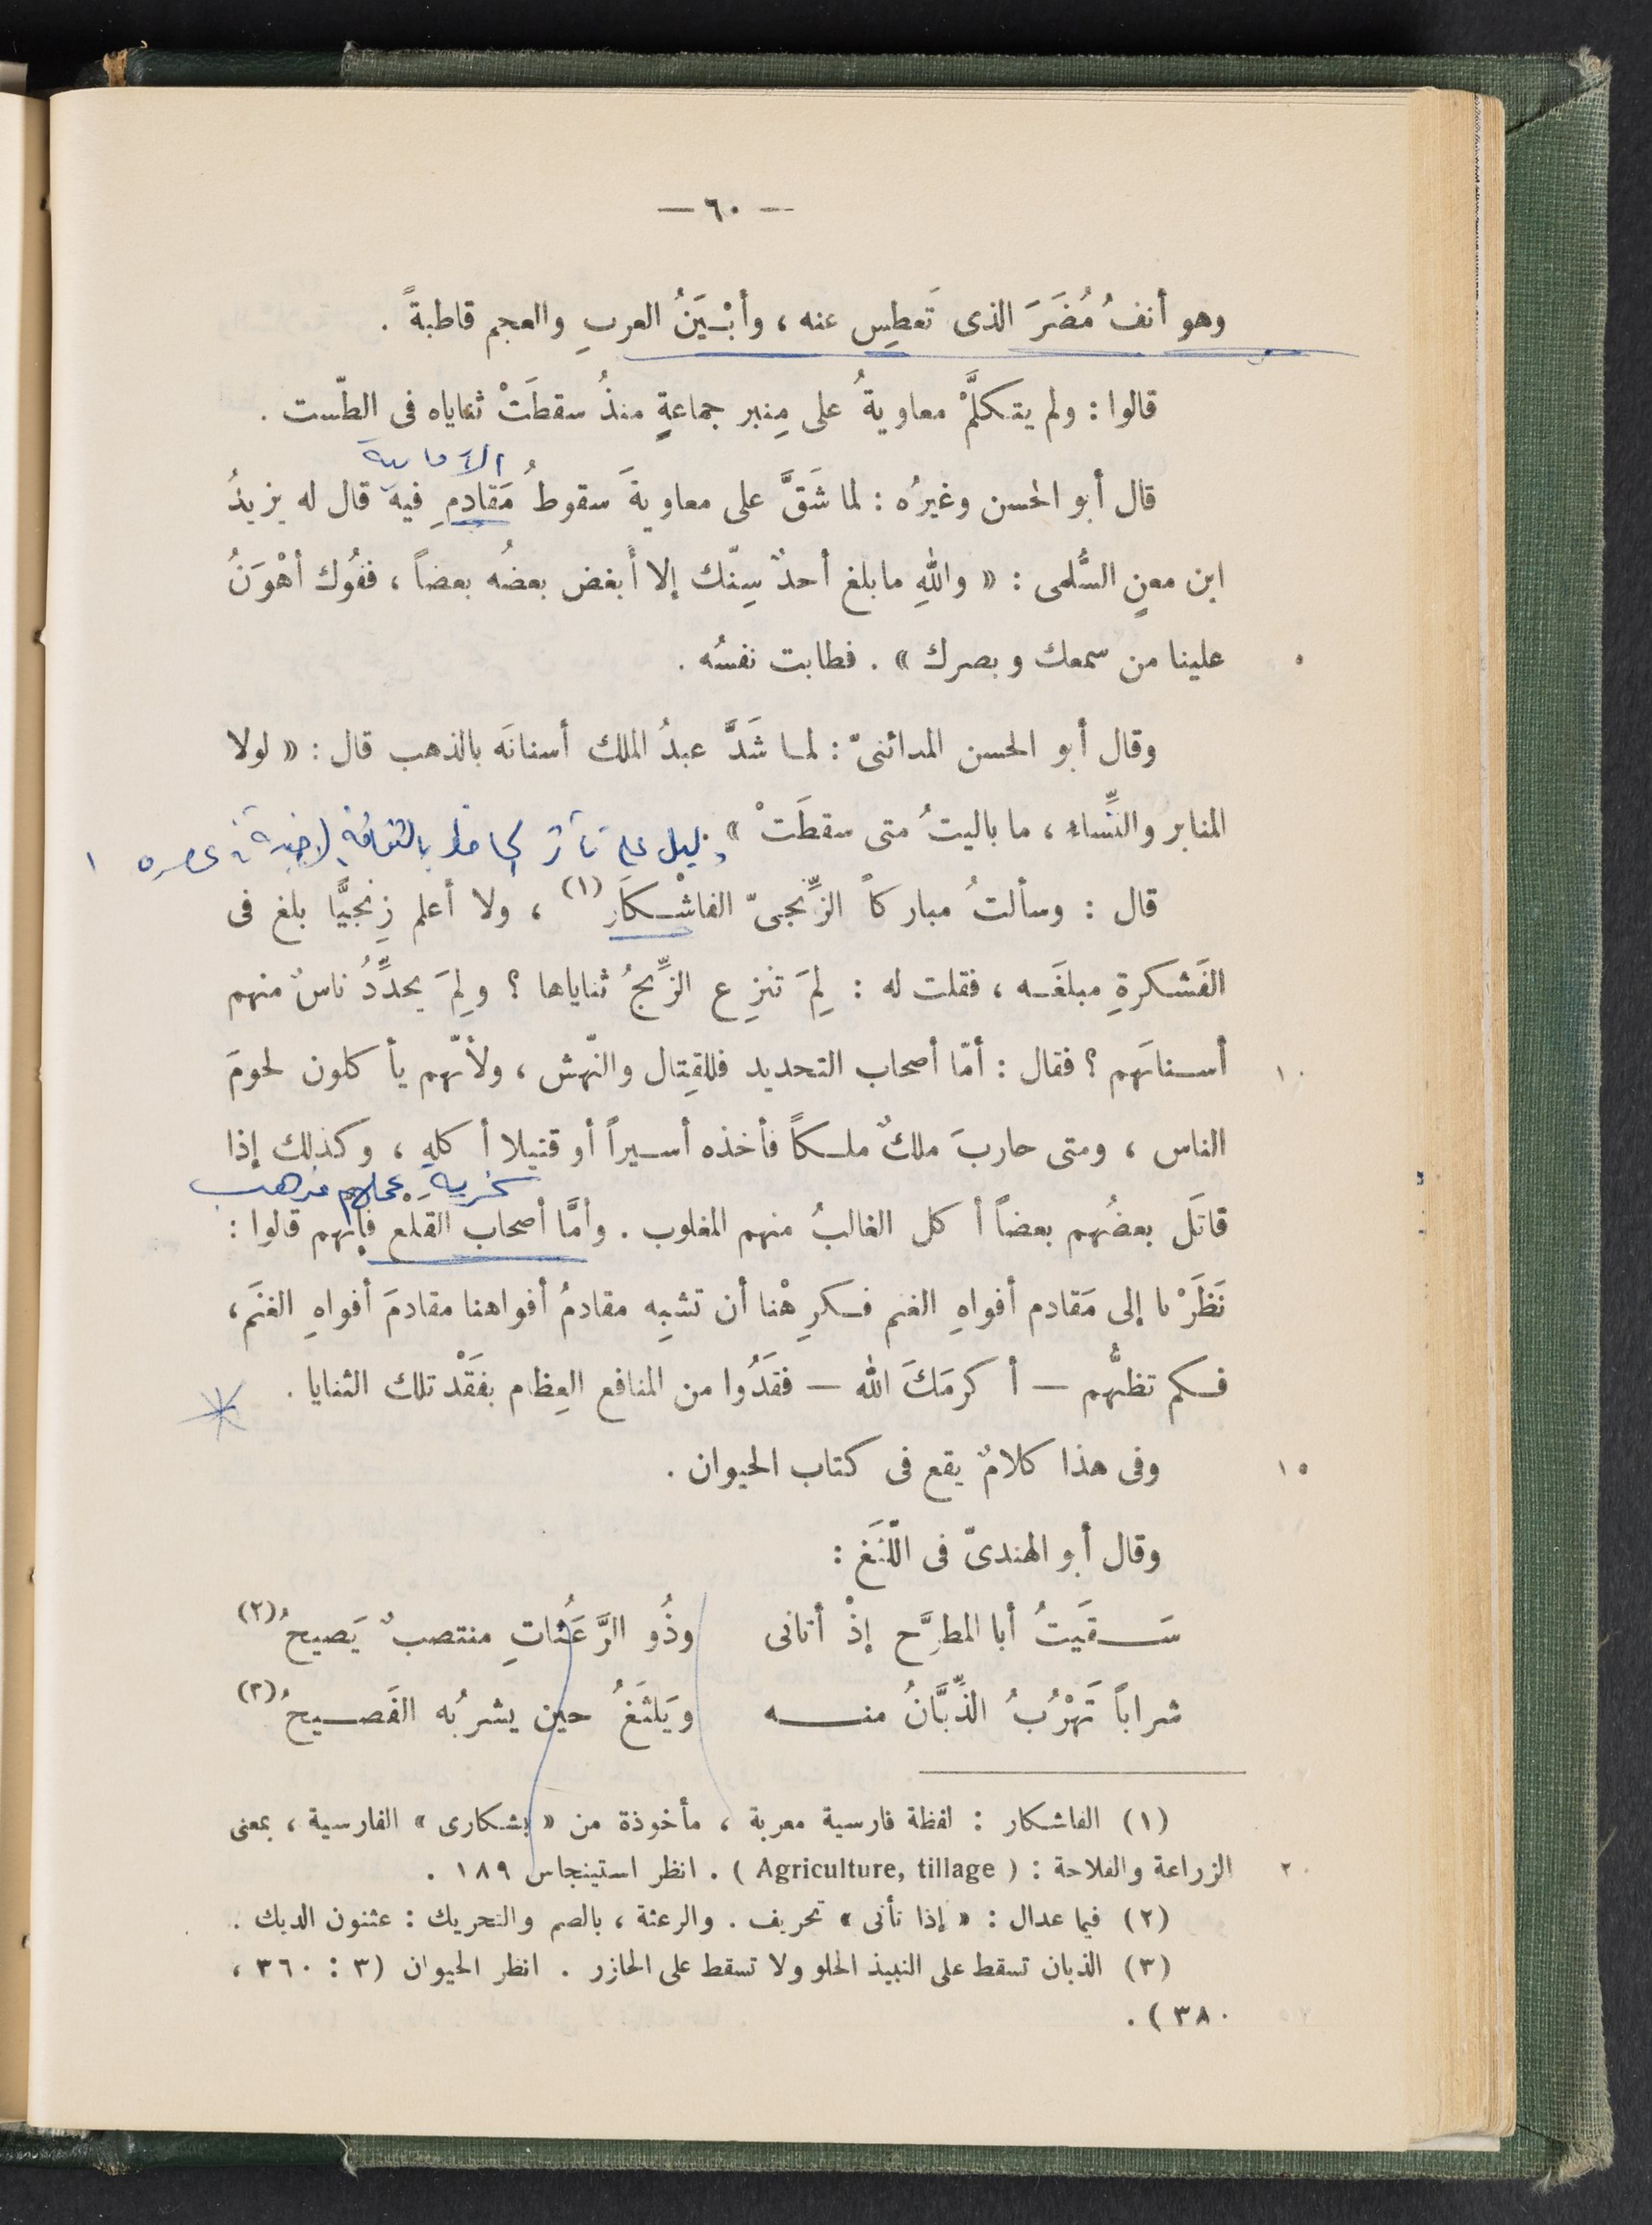 — ٦٠ —
وهو أنفُ مُضَرَ الذى تَعطِس عنه ، وأبْـيَنُ العربِ والعجم قاطبةً .
قالوا : ولم يتكلَّمْ معاويةُ على مِنبر جماعةٍ منذُ سقطَتْ ثناياه فى الطّست .
الأمامية
قال أبو الحسن وغيرُه : لما شَقَّ على معاويةَ سقوطُ مَقادِمِ فيه قال له يزيدُ
ابن معنٍ السُّلمى : « واللهِ ما بلغ أحدٌ سِنّك إلا أبغض بعضُه بعضاً ، ففُوك أهْوَنُ
علينا من سمعك وبصرك » . فطابت نفسُه . ٥
وقال أبو الحسن المدائنىّ : لما شَدَّ عبدُ الملك أسنانَه بالذهب قال : « لولا
المنابر والنِّساء ، ما باليتُ متى سقطَتْ » .
دليل على تأثر الجاحظ بالثقافة الأجنبية فى عصره ١
قال : وسألتُ مباركاً الزِّنجىّ الفاشْكَار (١) ، ولا أعلم زِنجيًّا بلغ فى
الفَشكرةِ مبلغَه ، فقلت له : لِمَ تنزِع الزِّنجُ ثناياها ؟ ولِمَ يحدِّدُ ناسٌ منهم
أسنانَهم ؟ فقال : أمّا أصحاب التحديد فللقِتال والنّهش ، ولأنّهم يأكلون لحومَ ١٠
الناس ، ومتى حاربَ ملكٌ ملكاً فأخذه أسيراً أو قتيلا أكله ، وكذلك إذا
سخرية
قاتَل بعضُهم بعضاً أكل الغالبُ منهم المغلوب . وأمَّا أصحاب القَلْع فإنّهم قالوا :
نَظَرْنا إلى مَقادم أفواهِ الغنم فكرِهْنا أن تشبِه مقادمُ أفواهنا مقادمَ أفواهِ الغنَم ،
فكم تظنُّهم — أكرمَكَ الله — فقَدُوا من المنافع العِظام بفَقْد تلك الثنايا .
وفى هذا كلامٌ يقع فى كتاب الحيوان . ١٥
وقال أبو الهندىّ فى اللَّثَغ :
سَقَيتُ أبا المطرَّح إذْ أتانى وذُو الرَّعَثاتِ منتصبٌ يَصيحُ (٢)
شراباً تَهْرُبُ الذِّبَّانُ منه ويَلثَغُ حين يشربُه الفَصيحُ (٣)
(١) الفاشكار : لفظة فارسية معربة ، مأخوذة من « بشكارى » الفارسية ، بمعنى
الزراعة والفلاحة : ( Agriculture, tillage ) . انظر استينجاس ١٨٩ . ٢٠
(٢) فيما عدا ل : « إذا تأنى » تحريف . والرعثة ، بالضم والتحريك : عثنون الديك .
(٣) الذبان تسقط على النبيذ الحلو ولا تسقط على الحازر . انظر الحيوان (٣ : ٣٦٠ ،
٣٨٠ ) .